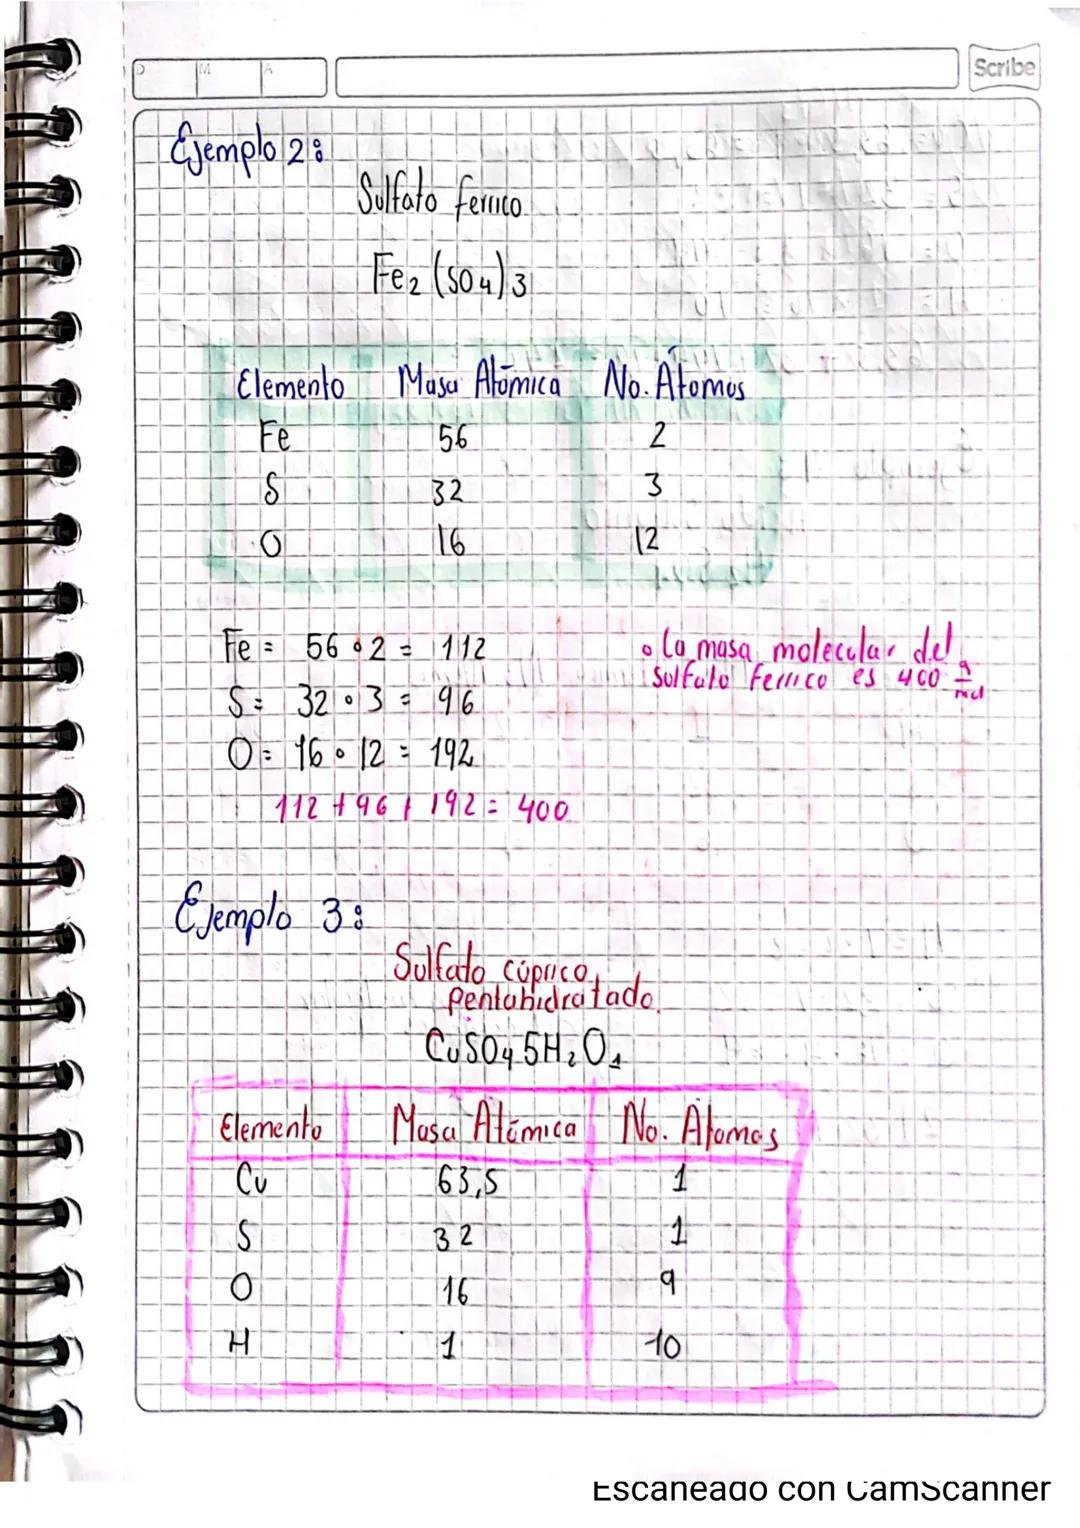 D M A
Scribe
Ejemplo 2:
Sulfato ferrico
Fe₂ (SO₄)₃
Elemento Masa Atómica No. Átomos
Fe 56 2
S 32 3
O 16 12
Fe = 56 • 2 = 112
S = 32 • 3 = 96
O = 16 • 12 = 192
112 + 96 + 192 = 400
• La masa molecular del
Sulfato ferrico es 400 g/mol
Ejemplo 3:
Sulfato cúprico
pentahidratado.
CuSO₄ 5H₂O₁
Elemento Masa Atómica No. Átomos
Cu 63,5 1
S 32 1
O 16 9
H 1 10
Escaneado con CamScanner